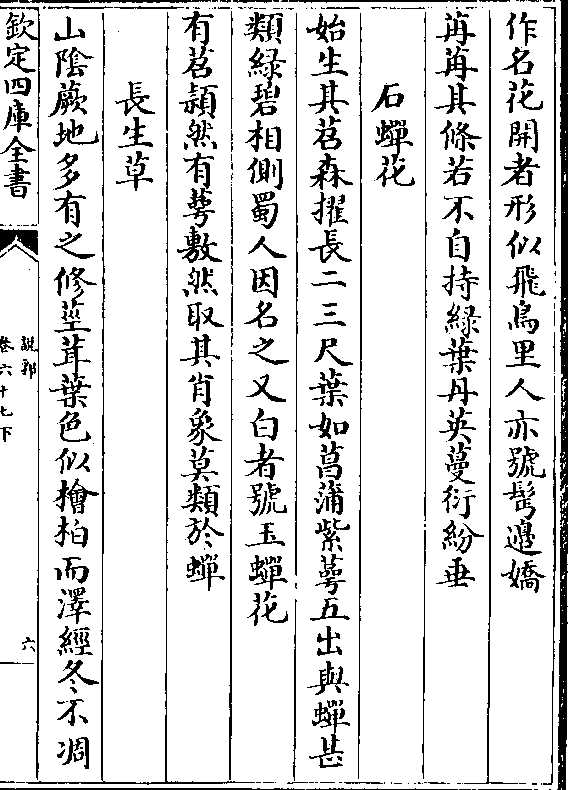 作名花開者形似飛鳥里人亦號髩邊嬌
苒苒其條若不自持緑葉丹英蔓衍紛垂
石蟬花
始生其苕森擢長二三尺葉如菖蒲紫萼五出與蟬甚
類緑碧相側蜀人因名之又白者號玉蟬花
有苕頴然有萼敷然取其肖象莫類於蟬
長生草
山隂蕨地多有之修莖茸葉色似檜柏而澤經冬不凋
欽定四庫全書
說郛
卷六十七下
六